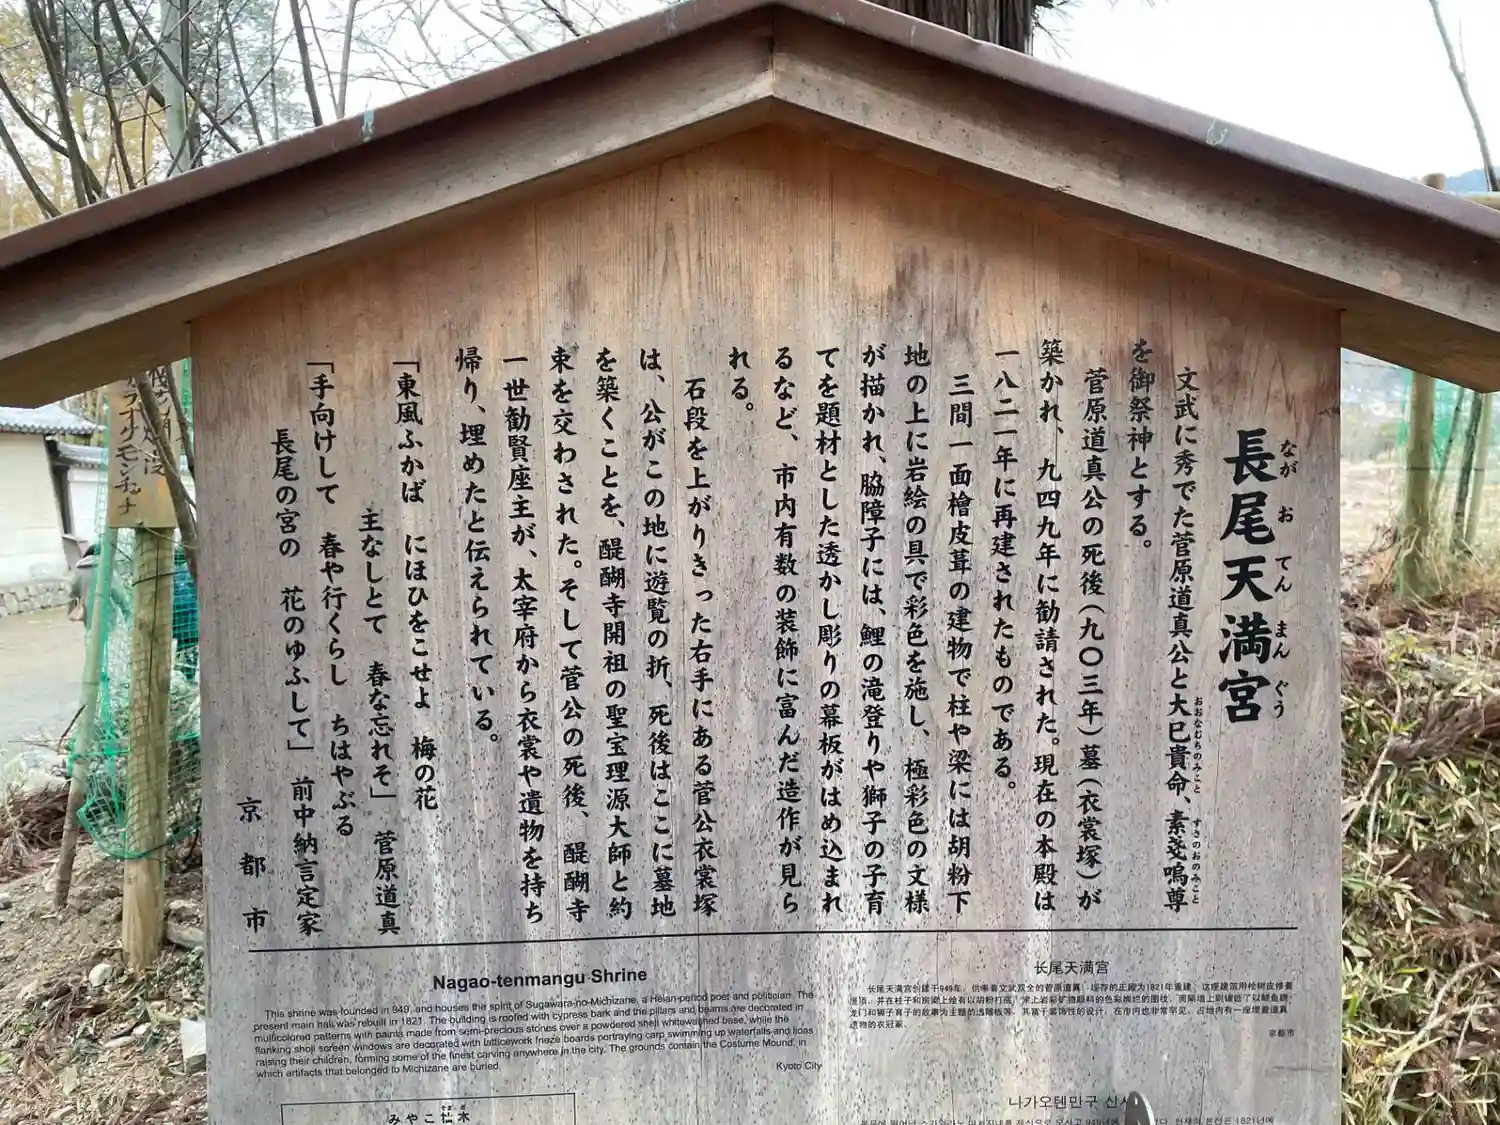 長尾天満宮
ながおてんまんぐう
文武に秀でた菅原道真公と大巳貴命、素戔嗚尊
おおなむちのみこと
すさのおのみこと
を御祭神とする。
菅原道真公の死後（九〇三年）墓（衣裳塚）が
築かれ、九四九年に勧請された。現在の本殿は
一八二一年に再建されたものである。
三間一面檜皮葺の建物で柱や梁には胡粉下
地の上に岩絵の具で彩色を施し、極彩色の文様
が描かれ、脇障子には、鯉の滝登りや獅子の子育
てを題材とした透かし彫りの幕板がはめ込まれ
るなど、市内有数の装飾に富んだ造作が見ら
れる。
石段を上がりきった右手にある菅公衣裳塚
は、公がこの地に遊覧の折、死後はここに墓地
を築くことを、醍醐寺開祖の聖宝理源大師と約
束を交わされた。そして菅公の死後、醍醐寺
一世勧賢座主が、太宰府から衣裳や遺物を持ち
帰り、埋めたと伝えられている。
「東風ふかば にほひをこせよ 梅の花
主なしとて 春な忘れそ」 菅原道真
「手向けして 春や行くらし ちはやぶる
長尾の宮の 花のゆふして」 前中納言定家
京都市
Nagao-tenmangu Shrine
This shrine was founded in 949, and houses the spirit of Sugawara-no-Michizane, a Heian-period poet and politician. The
present main hall was rebuilt in 1821. The building is roofed with cypress bark and the pillars and beams are decorated in
multicolored patterns with paints made from semi-precious stones over a powdered shell whitewashed base, while the
flanking shoji screen windows are decorated with latticework frieze boards portraying carp swimming up waterfalls and lions
raising their children, forming some of the finest carving anywhere in the city. The grounds contain the Costume Mound, in
which artifacts that belonged to Michizane are buried.
Kyoto City
长尾天满宫
长尾天满宫创建于949年，供奉着文武双全的菅原道真。现存的正殿为1821年重建
京都市
나가오텐만구 신사
みやこ杣木
そまぎ